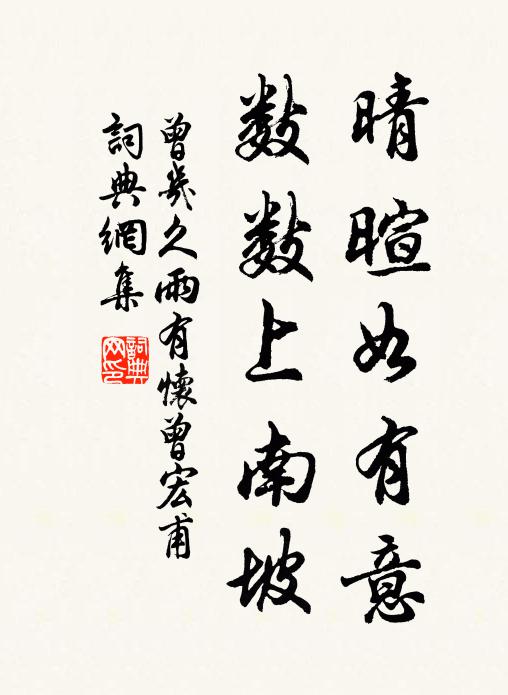 晴暄如有意
數數上南坡
曾幾久雨有懷曾宏甫
詞典網集
詞典網印